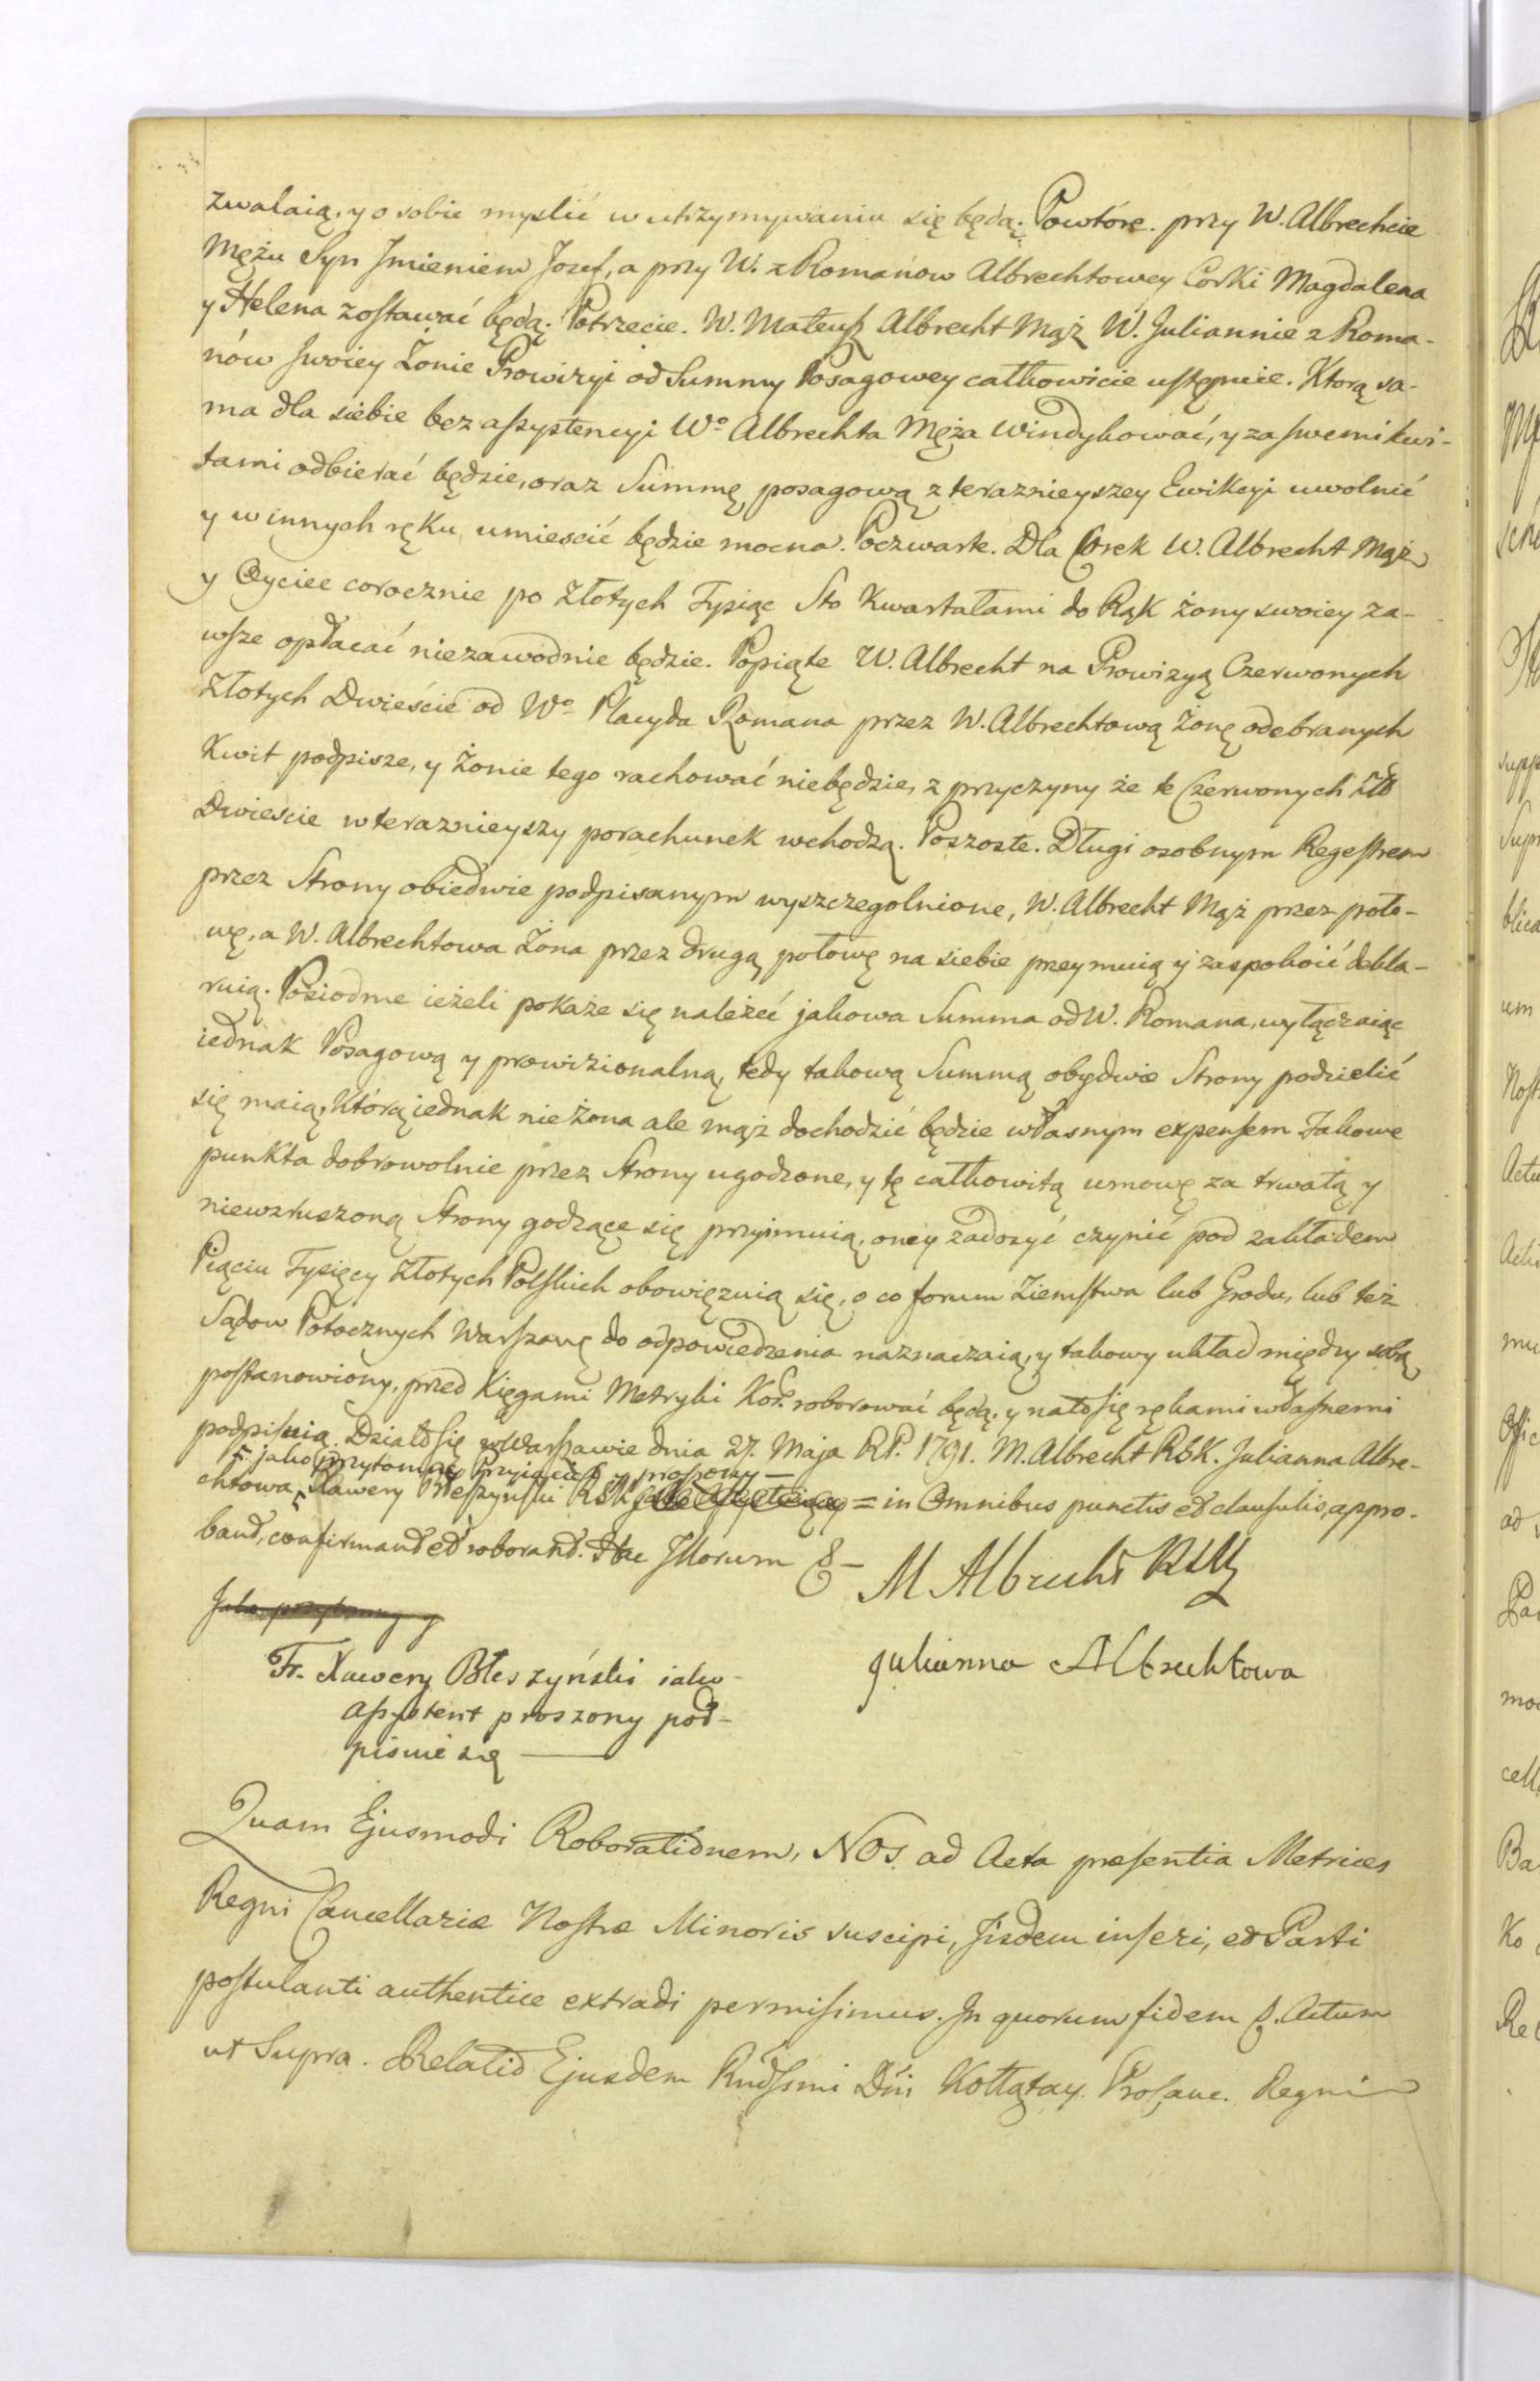 zwalaią, y o sobie myslić w utrzymywaniu się będą. Powtóre. przy W. Albrechcie
Mężu Syn Jmieniem Jozef, a przy W. z Romanow Albrechtowey Corki Magdalena
y Helena zostawać będą. Potrzecie. W. Mateusz Albrecht Mąż W. Juliannie z Roma-
nów swoiey Żonie Prowizyi od Summy Posagowey całkowicie ustępuie. Ktorą sa-
ma dla siebie bez assystencyi Wo Albrechta Męża windykować, y za swemi kwi-
tami odbierać będzie, oraz Summę posagową z teraznieyszey Ewikcyi uwolnić
y w innych ręku umiescić będzie mocna. Poczwarte. Dla Corek W. Albrecht Mąż
y Oyciec corocznie po Złotych Tysiąc Sto Kwartałami do Rąk żony swoiey za-
wsze opłacać niezawodnie będzie. Popiąte W. Albrecht na Prowizyą Czerwonych
Złotych Dwieście od Wo Placyda Romana przez W. Albrechtową Żonę odebranych
Kwit podpisze, y Żonie tego rachować niebędzie, z przyczyny że te Czerwonych Zło
Dwiescie w teraznieyszy porachunek wchodzą. Poszoste. Długi osobnym Regestrem
przez Strony obiedwie podpisanym wyszczegolnione, W. Albrecht Mąż przez poło-
wę, a W. Albrechtowa Żona przez drugą połowę na siebie przeymuią y zaspokoić dekla-
ruią. Posiodme ieżeli pokaże się należeć jakowa Summa od W. Romana, wyłączaiąc
iednak Posagową y prowizionalną, tedy takową Summą obydwie Strony podzielić
się maią, którą iednak nie Żona ale mąż dochodzić będzie własnym expensem Takowe
punkta dobrowolnie przez Strony ugodzone, y tę całkowitą umowę za trwałą y
niewzruszoną Strony godzące się przyimuią, oney zadosyć czynić pod zakładem
Piąciu Tysięcy Złotych Polskich obowięzuią się, o co forum Ziemstwa lub Grodu, lub też
Sądow Potocznych Warszawę do odpowiedzenia naznaczaią, y takowy układ między sobą
postanowiony, przed Xięgami Metryki Kor. roborować będą, y nato się rękami własnemi
podpisuią. Działo się w Warszawie dnia 27. Maja RP. 1791. M. Albrecht RSK. Julianna Albre-
jako przytomny Przyiaciel y proszony —
chtowa, Xawery Błeszyński RSK = in Omnibus punctis et clausulis, appro-
band, confirmand et roborand. Hac Illorum &-
M Albrecht RSK
Jako przytomny y
Fr. Xawery Błeszyński iako-
Assystent proszony pod-
pisuie się —
Julianna Albrechtowa
Quam Ejusmodi Roborationem, Nos ad Acta præsentia Metrices
Regni Cancellariæ Nostræ Minoris suscipi, Iisdem inseri, et Parti
postulanti authentice extradi permisimus. In quorum fidem &. Actum
ut Supra. Relatio Ejusdem Rndssmi Dni Kołłątay. ProCanc. Regni